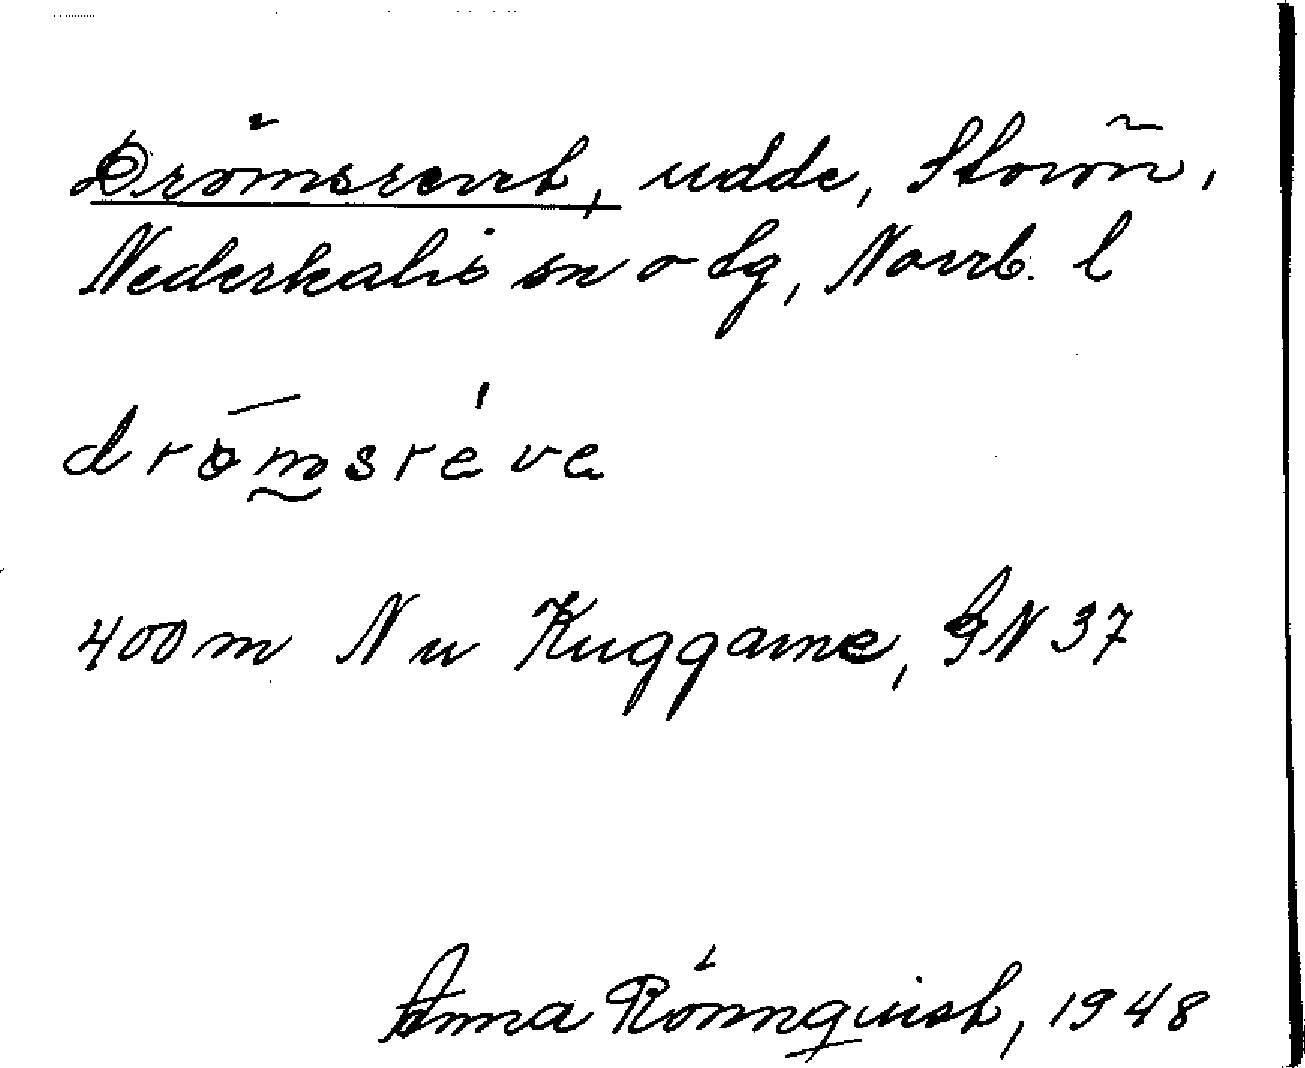 Drömsrevet, udde, Storön,
Nederkalix sn o lg, Norrb. l
drömsréve
400 m N u Kuggarne, GN 37
Anna Rönnquist, 1948